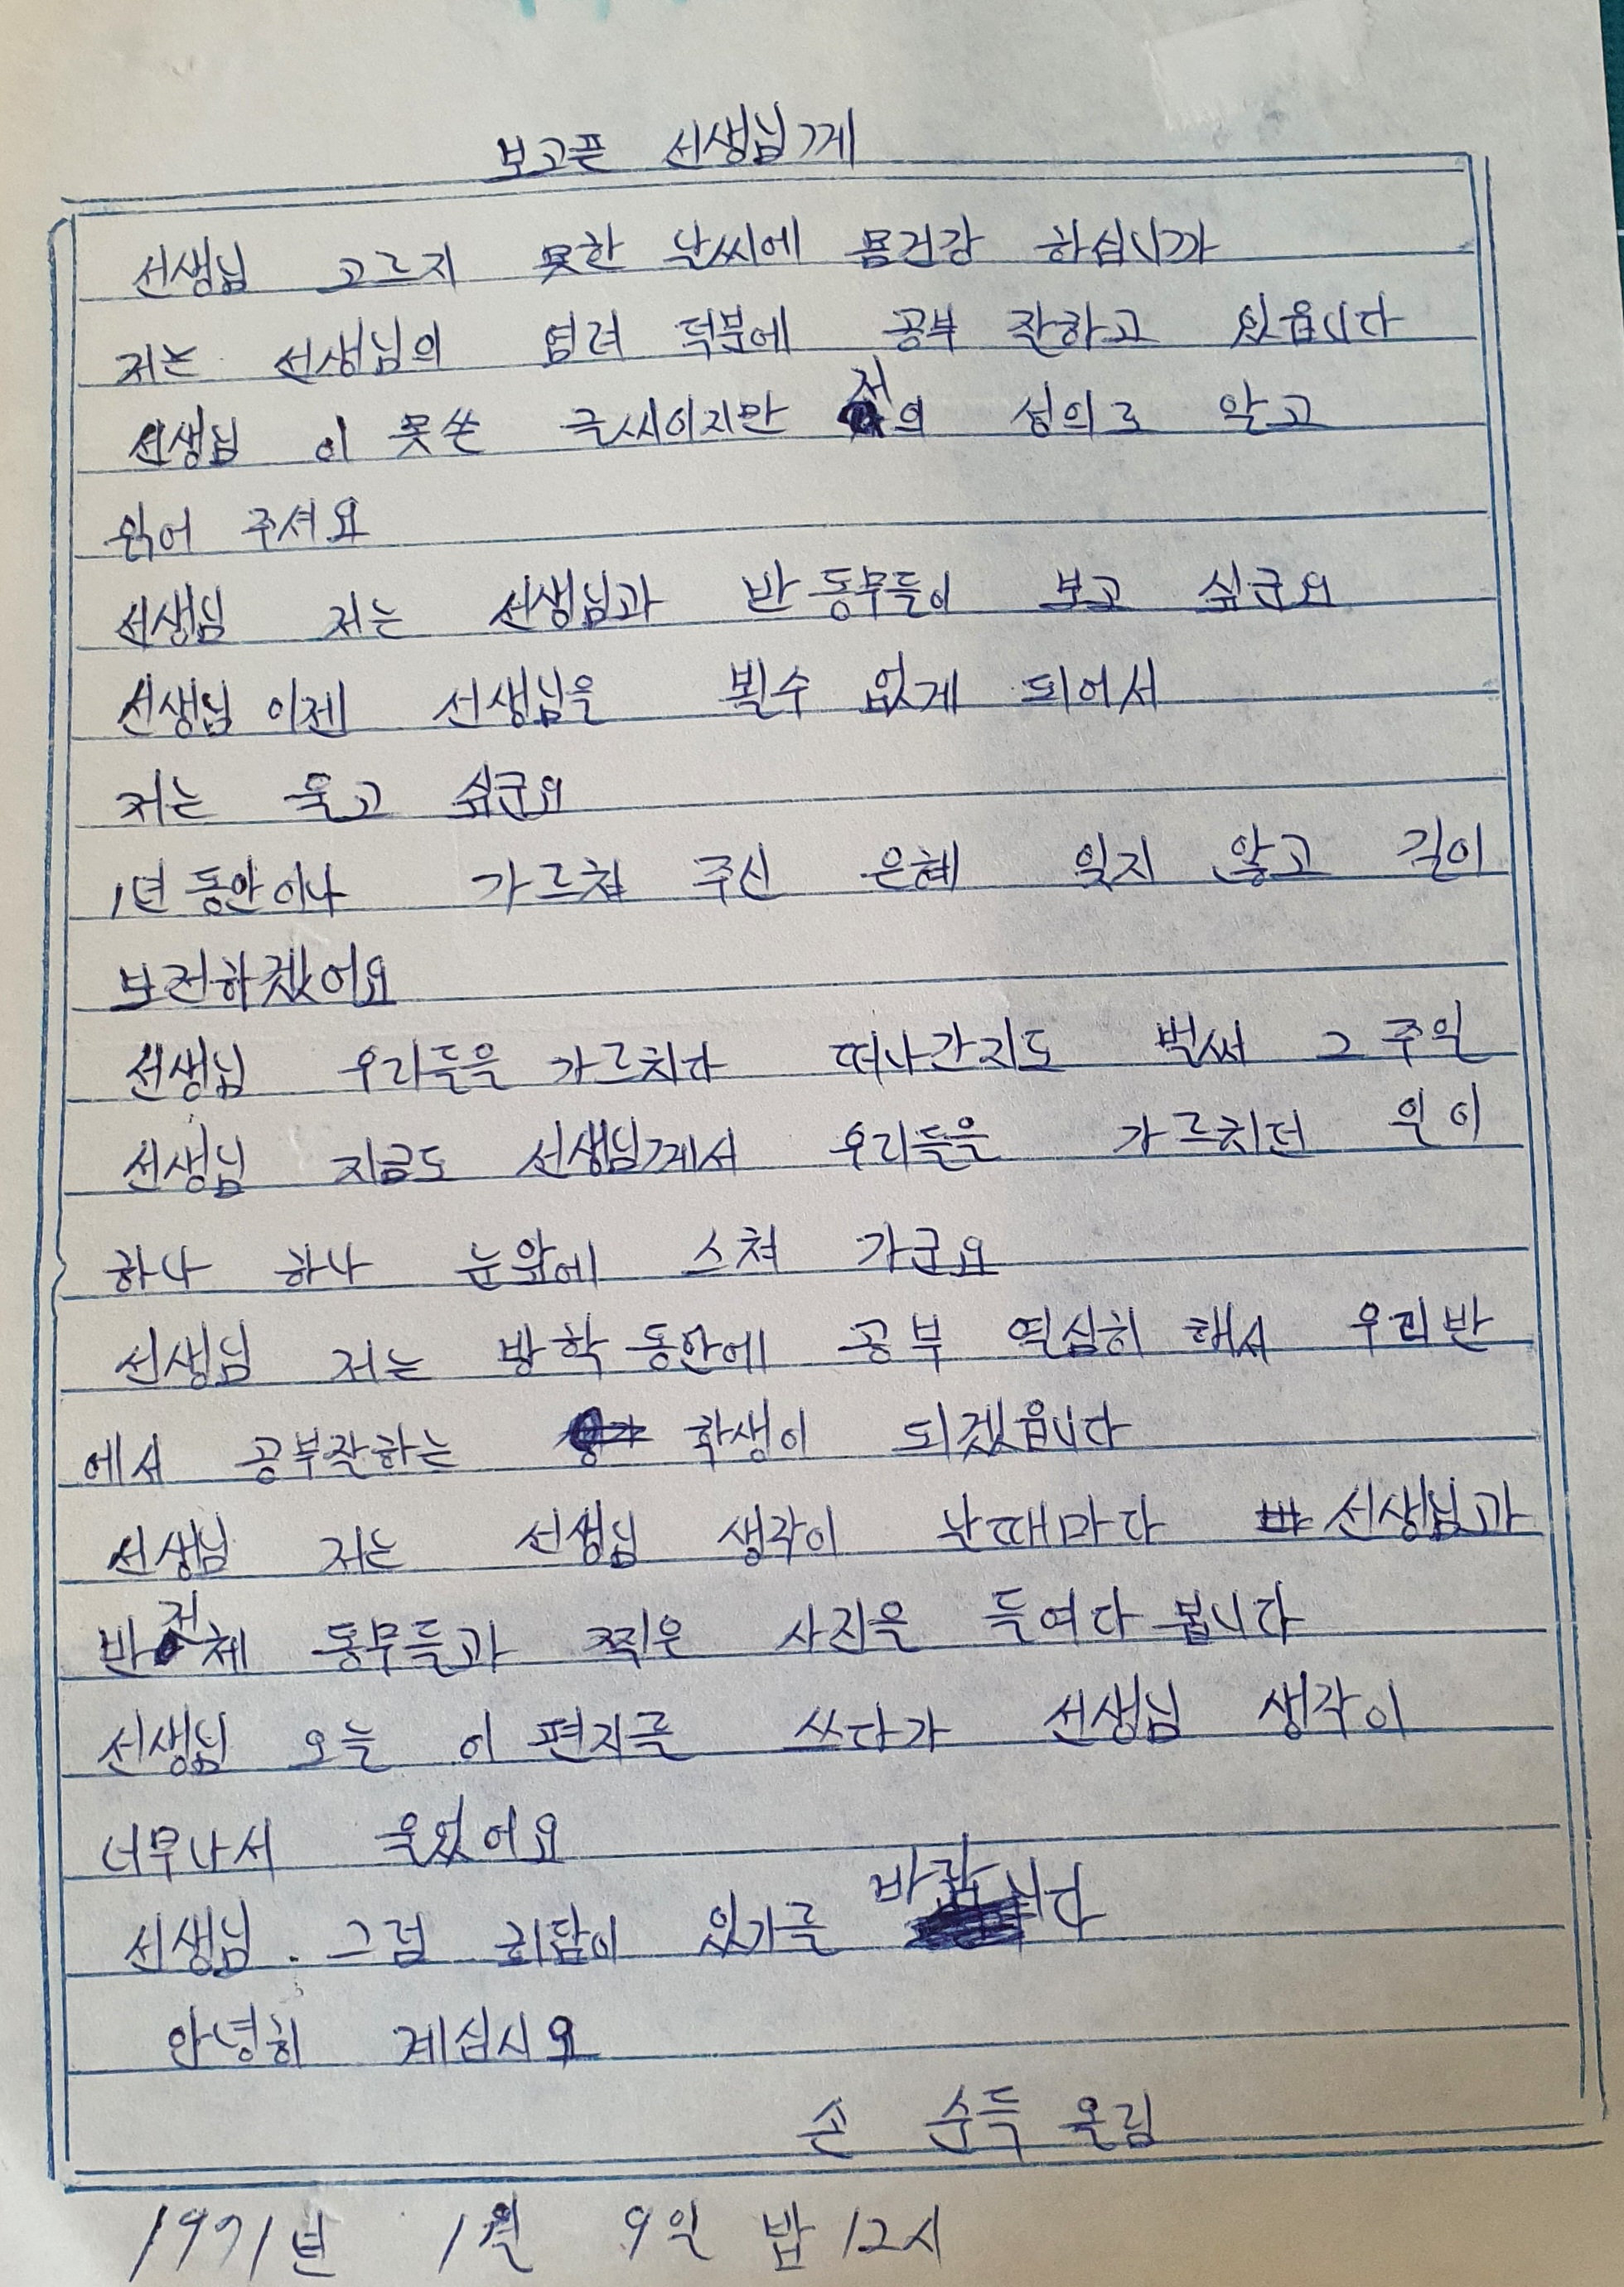 보고픈 선생님께
선생님 고르지 못한 날씨에 몸건강 하십니까
저는 선생님의 염려 덕분에 공부 잘하고 있읍니다
선생님 이 못쓴 글씨이지만 저의 성의로 알고
읽어 주셔요
선생님 저는 선생님과 반 동무들이 보고 싶군요
선생님 이젠 선생님을 뵐수 없게 되어서
저는 울고 싶군요
1년 동안이나 가르쳐 주신 은혜 잊지 않고 길이
보전하겠어요
선생님 우리들을 가르치다 떠나간지도 벌써 2주일
선생님 지금도 선생님께서 우리들을 가르치던 일이
하나 하나 눈앞에 스쳐 가군요
선생님 저는 방학 동안에 공부 열심히 해서 우리반
에서 공부잘하는 학생이 되겠읍니다
선생님 저는 선생님 생각이 날때마다 선생님과
반전체 동무들과 찍은 사진을 들여다 봅니다
선생님 오늘 이 편지를 쓰다가 선생님 생각이
너무나서 울었어요
선생님. 그럼 회답이 있기를 바랍니다
안녕히 계십시요
손 순득 올림
1971년 1월 9일 밤 12시